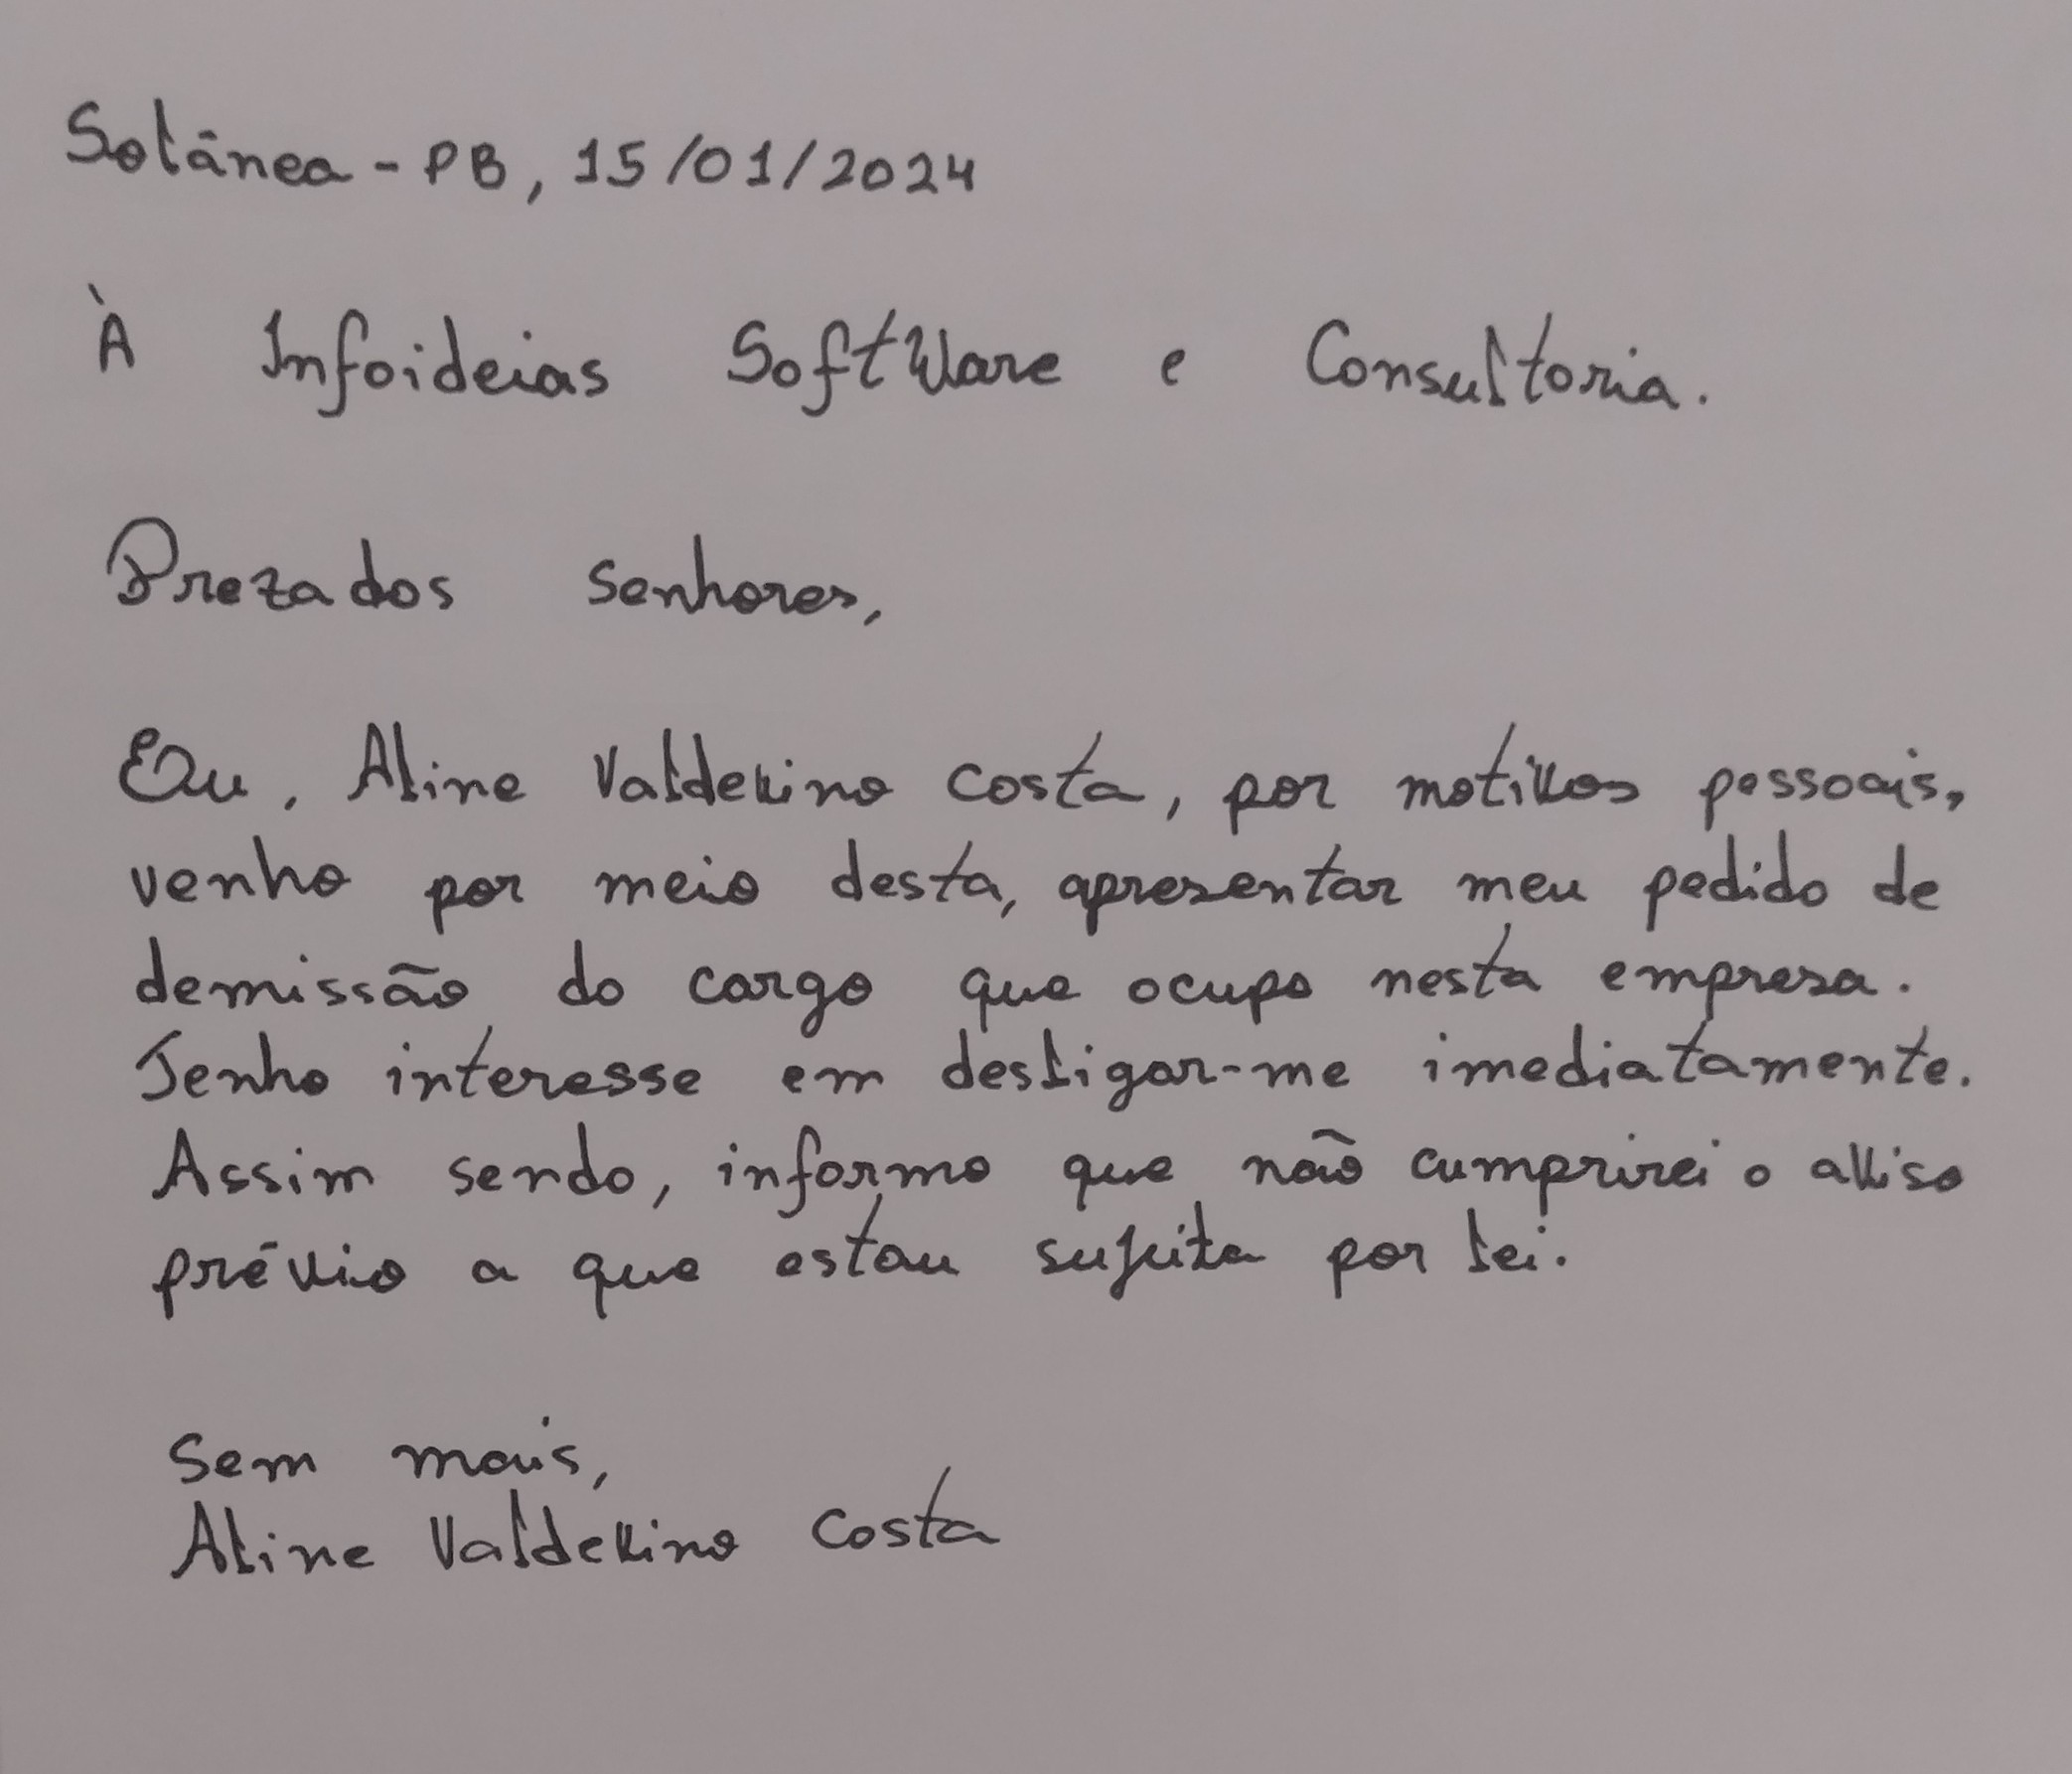 Solânea - PB, 15/01/2024
À Infoideias SoftWare e Consultoria.
Prezados senhores,
Eu, Aline Valdevino Costa, por motivos pessoais,
venho por meio desta, apresentar meu pedido de
demissão do cargo que ocupo nesta empresa.
Tenho interesse em desligar-me imediatamente.
Assim sendo, informo que não cumprirei o aviso
prévio a que estou sujeita por lei.
Sem mais,
Aline Valdevino Costa